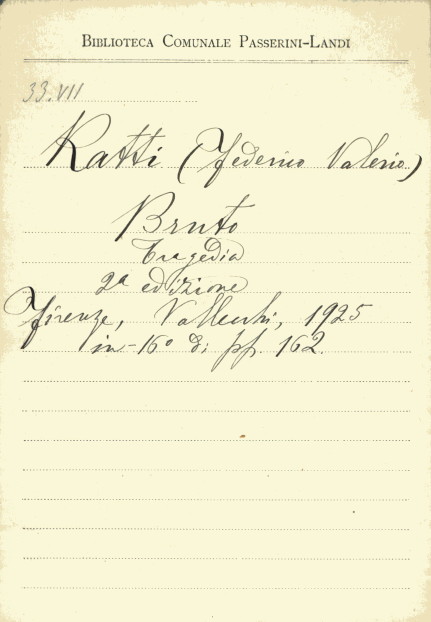 BIBLIOTECA COMUNALE PASSERINI-LANDI
33.VII
Ratti (Federico Valerio)
Bruto
Tragedia
2ª edizione
Firenze, Vallecchi, 1925
in-16° di pp. 162.